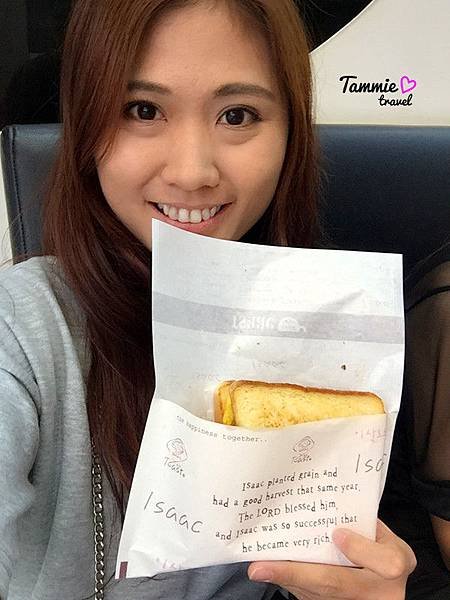 Tammie
travel
the happiness together..
Toast
Isaac
Isaac planted grain and
had a good harvest that same year.
The LORD blessed him,
and Isaac was so successful that
he became very rich.